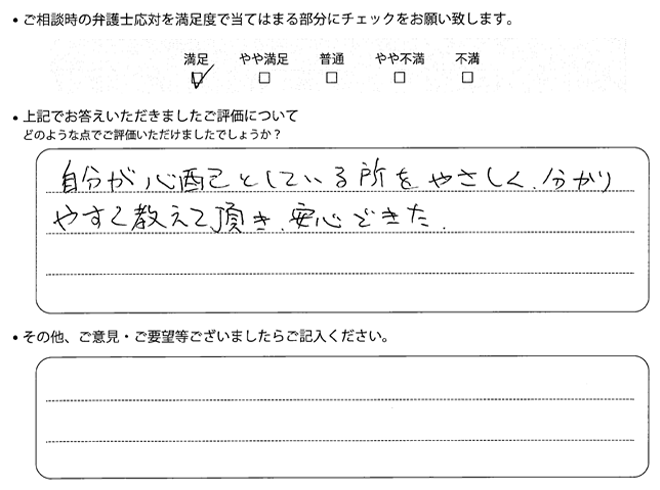 ・ご相談時の弁護士応対を満足度で当てはまる部分にチェックをお願い致します。
満足 やや満足 普通 やや不満 不満
・上記でお答えいただきましたご評価について
どのような点でご評価いただけましたでしょうか?
自分が心配已としている所をやさしく、分かり
やすく教えて頂き、安心できた.
・その他、ご意見・ご要望等ございましたらご記入ください。